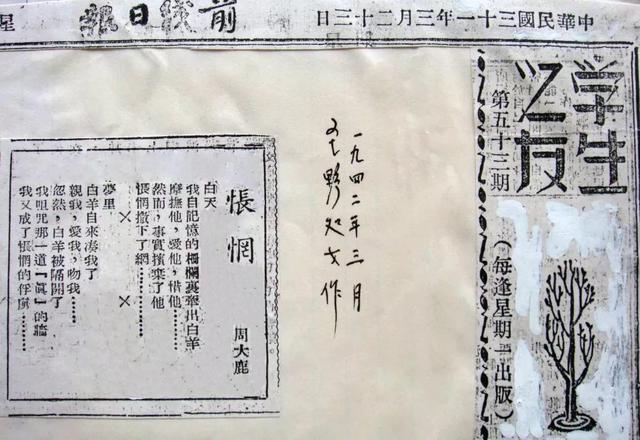 中華民國三十一年三月二十三日
前綫日報
星
学生
之友
第五十三期
(每逢星期一出版)
一九四二年三月
处女作
悵惘
周大鹿
白天
我自記憶的柵欄裏牽出白羊
摩撫他,愛他,惜他………
然而,事實擯棄了他
悵惘撒下了網………
× ×
夢里
白羊自來湊我了
親我,愛我,吻我………
忽然,白羊被隔開了
我咀咒那一道『眞』的牆
我又成了悵惘的俘虜………